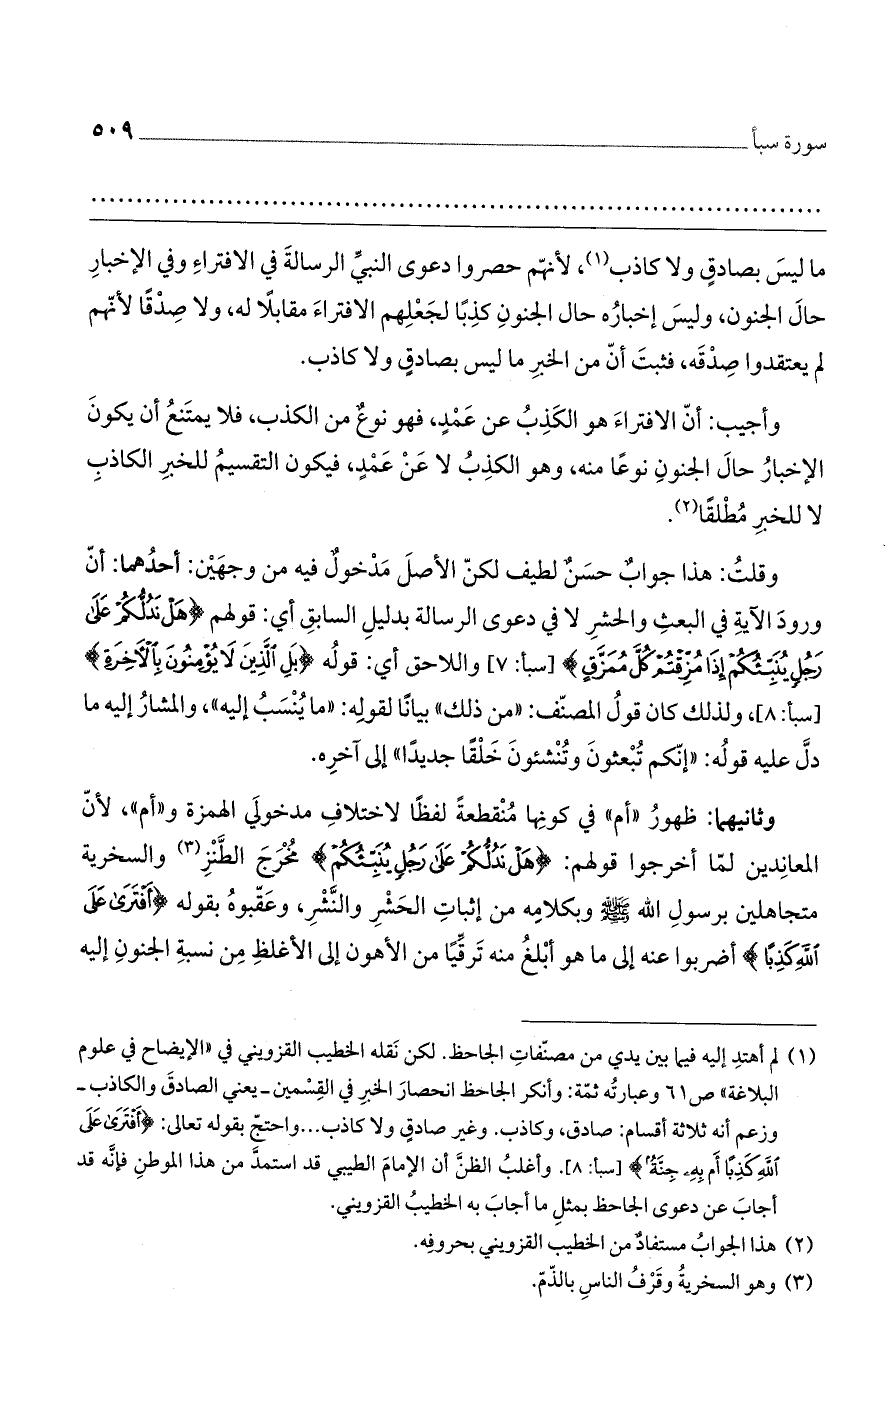 سورة سبأ ٥٠٩
ما ليسَ بصادقٍ ولا كاذب(١)، لأنهّم حصروا دعوى النبيِّ الرسالةَ في الافتراءِ وفي الإخبارِ
حالَ الجنون، وليسَ إخبارُه حال الجنونِ كذِبًا لجَعْلِهم الافتراءَ مقابلًا له، ولا صِدْقًا لأنّهم
لم يعتقدوا صِدْقَه، فثبتَ أنّ من الخبرِ ما ليس بصادقٍ ولا كاذب.
وأجيب: أنّ الافتراءَ هو الكَذِبُ عن عَمْدٍ، فهو نوعٌ من الكذب، فلا يمتَنعُ أن يكونَ
الإخبارُ حالَ الجنونِ نوعًا منه، وهو الكذبُ لا عَنْ عَمْدٍ، فيكون التقسيمُ للخبرِ الكاذبِ
لا للخبرِ مُطْلقًا(٢).
وقلتُ: هذا جوابٌ حسَنٌ لطيف لكنّ الأصلَ مَدْخولٌ فيه من وجهَيْن: أحدُهما: أنّ
ورودَ الآيةِ في البعثِ والحشرِ لا في دعوى الرسالة بدليلِ السابقِ أي: قولهم ﴿هَلْ نَدُلُّكُمْ عَلَىٰ
رَجُلٍ يُنَبِّئُكُمْ إِذَا مُزِّقْتُمْ كُلَّ مُمَزَّقٍ﴾ [سبأ: ٧] واللاحق أي: قولُه ﴿بَلِ ٱلَّذِينَ لَا يُؤْمِنُونَ بِٱلْآخِرَةِ﴾
[سبأ: ٨]، ولذلك كان قولُ المصنّف: «من ذلك» بيانًا لقولِه: «ما يُنْسَبُ إليه»، والمشارُ إليه ما
دلَّ عليه قولُه: «إنّكم تُبْعثونَ وتُنْشئونَ خَلْقًا جديدًا» إلى آخرِه.
وثانيهما: ظهورُ «أم» في كونِها مُنْقطعةً لفظًا لاختلافِ مدخولَيِ الهمزة و«أم»، لأنّ
المعاندين لمّا أخرجوا قولهم: ﴿هَلْ نَدُلُّكُمْ عَلَىٰ رَجُلٍ يُنَبِّئُكُمْ﴾ مُخْرَجَ الطَّنْزِ(٣) والسخرية
متجاهلين برسولِ الله ﷺ وبكلامِه من إثباتِ الحَشْرِ والنَّشْرِ، وعَقّبوهُ بقوله ﴿أَفْتَرَىٰ عَلَى
ٱللَّهِ كَذِبًا﴾ أضربوا عنه إلى ما هو أبْلغُ منه تَرقِّيًا من الأهون إلى الأغلظِ مِن نسبةِ الجنونِ إليه
(١) لم أهتدِ إليه فيما بين يدي من مصنّفاتِ الجاحظ. لكن نَقله الخطيب القزويني في «الإيضاح في علوم
البلاغة» ص٦١ وعبارتُه ثمّة: وأنكر الجاحظ انحصارَ الخبرِ في القِسْمين - يعني الصادقَ والكاذب -
وزعم أنه ثلاثة أقسام: صادق، وكاذب. وغير صادقٍ ولا كاذب... واحتجّ بقوله تعالى: ﴿أَفْتَرَىٰ عَلَى
ٱللَّهِ كَذِبًا أَم بِهِۦ جِنَّةٌۢ﴾ [سبأ: ٨]. وأغلبُ الظنَّ أن الإمامَ الطيبي قد استمدَّ من هذا الموطنِ فإنَّه قد
أجابَ عن دعوى الجاحظ بمثلِ ما أجابَ به الخطيبُ القزويني.
(٢) هذا الجوابُ مستفادٌ من الخطيب القزويني بحروفِه.
(٣) وهو السخريةُ وقَرْفُ الناسِ بالذّمّ.